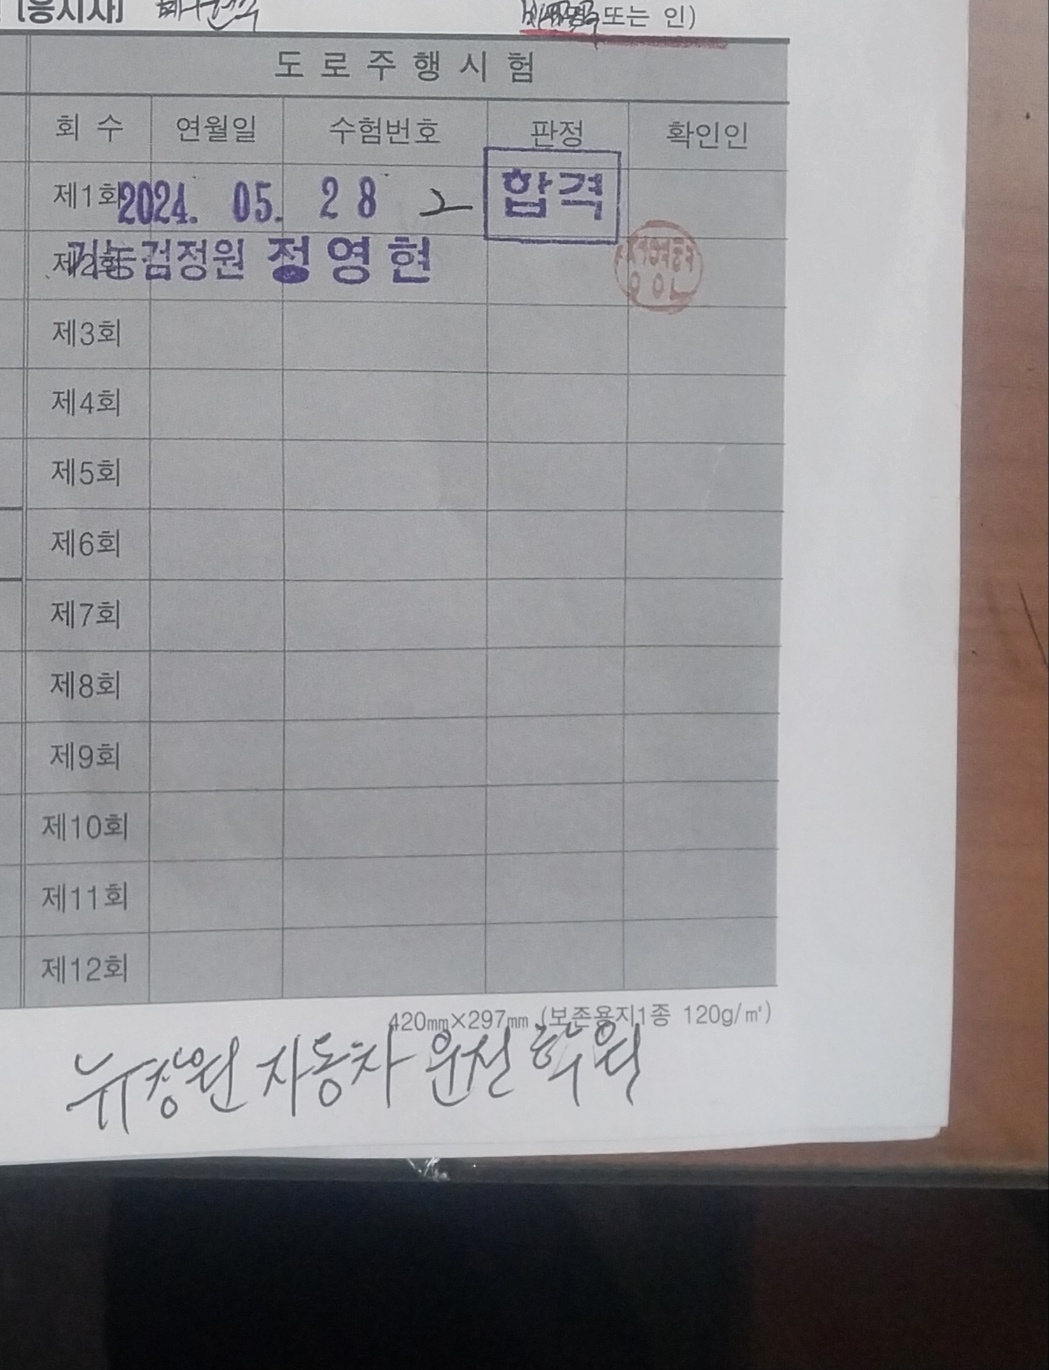 [응시자]
또는 인)
도로주행시험
회 수 연월일 수험번호 판정 확인인
제1회 2024. 05. 28 2 합격
제2회 기능검정원 정영현
제3회
제4회
제5회
제6회
제7회
제8회
제9회
제10회
제11회
제12회
420㎜×297㎜ (보존용지1종 120g/㎡)
뉴창원 자동차 운전 학원